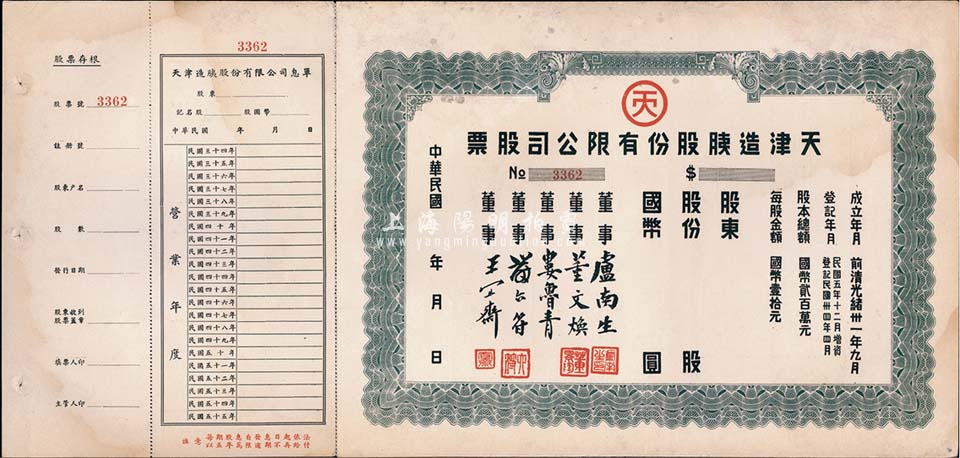 股票存根
股票號 3362
註册號
股東户名
股數
發行日期
股東收到
股票蓋章
填票人印
主管人印
3362
天津造胰股份有限公司息單
股東
記名股 股國幣
中華民國 年 月 日
營業年度
民國三十四年
民國三十五年
民國三十六年
民國三十七年
民國三十八年
民國三十九年
民國四十年
民國四十一年
民國四十二年
民國四十三年
民國四十四年
民國四十五年
民國四十六年
民國四十七年
民國四十八年
民國四十九年
民國五十年
民國五十一年
民國五十二年
民國五十三年
民國五十四年
民國五十五年
注意 每期股息自發息日起依法
以五年萬限逾期不再給付
天
天津造胰股份有限公司股票
No 3362
$
成立年月 前清光緒卅一年九月
登記年月 民國五年十二月增資
登記民國卅四年四月
股本總額 國幣貳百萬元
每股金額 國幣壹拾元
股東
股份 股
國幣 圓
董事 盧南生
董事 董文煥
董事 婁魯青
董事
董事 王
中華民國 年 月 日
上海陽明拍賣
www.yangmingauction.com